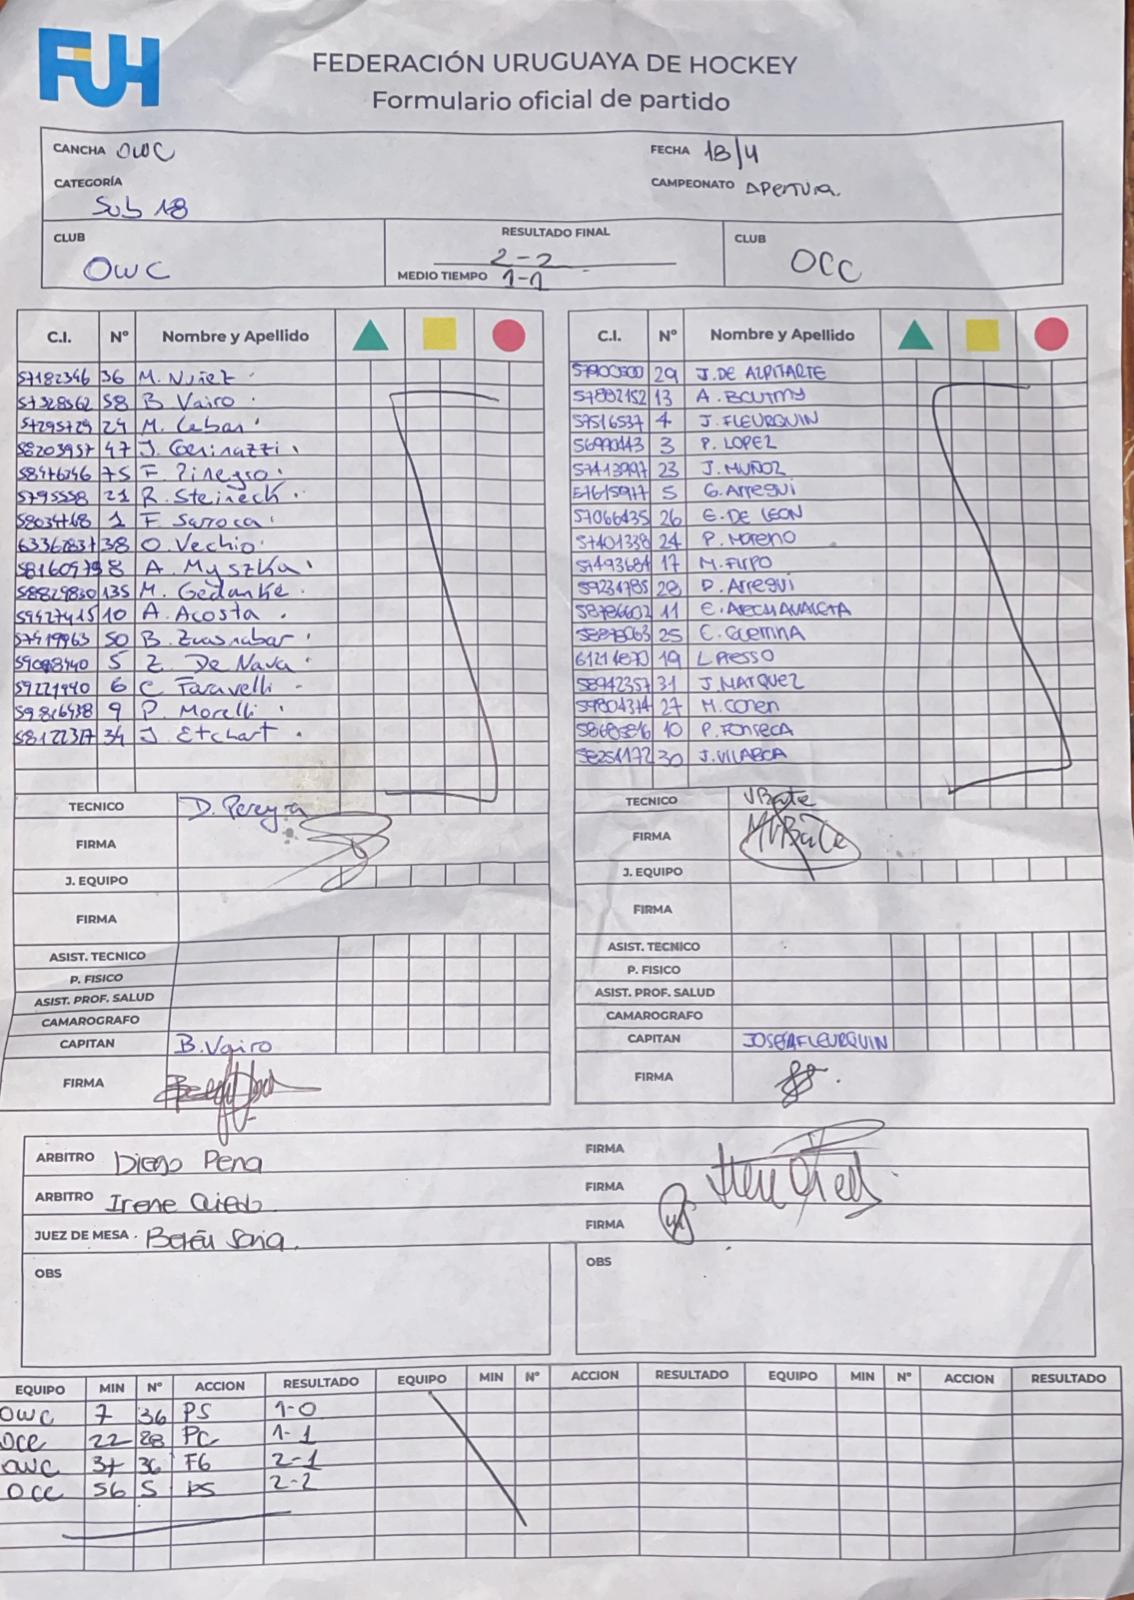 FUH
FEDERACIÓN URUGUAYA DE HOCKEY
Formulario oficial de partido
CANCHA OWC FECHA 18/4
CATEGORÍA CAMPEONATO APERTURA.
Sub 18
CLUB RESULTADO FINAL CLUB
OWC 2-2 OCC
MEDIO TIEMPO 1-1
C.I. Nº Nombre y Apellido C.I. Nº Nombre y Apellido
57182346 36 M. Nuñez 29 J. DE AZPITARTE
57328562 58 B Vairo 57892152 13 A. BOUTMY
57295729 29 M. 57516537 4 J. FLEURQUIN
58203957 47 J. 3 P. LOPEZ
58476246 75 F. Pineyro 23 J. MUÑOZ
5795558 21 R. Steineck 5 G. Arregui
1 F Sarroca 57066435 26 E. DE LEON
38 O. Vechio 57401338 24 P. Moreno
8 A. Myszka 57493684 17 M. FURPO
58829830 135 M. Gedanke 59234785 28 D. Arregui
59427415 10 A. Acosta 58786602 11 E. AECHAVALETA
57419963 50 B. Zuasnabar 25 C. GUERRINA
5 Z. De Nava 19 L PRESSO
59221940 6 C Faravelli 58942357 31 J. MARQUEZ
59826438 9 P. Morelli 59804374 27 M. COHEN
58122317 34 J Etchart 10 P. FONSECA
58251172 30 J. VILASECA
TECNICO D. Pereyra TECNICO VBate
FIRMA FIRMA MVBate
J. EQUIPO J. EQUIPO
FIRMA FIRMA
ASIST. TECNICO ASIST. TECNICO
P. FISICO P. FISICO
ASIST. PROF. SALUD ASIST. PROF. SALUD
CAMAROGRAFO CAMAROGRAFO
CAPITAN B. Vairo CAPITAN JOSEFA FLEURQUIN
FIRMA FIRMA
ARBITRO Diego Pena FIRMA
ARBITRO Irene Oviedo FIRMA
JUEZ DE MESA. Belén Soria. FIRMA
OBS OBS
EQUIPO MIN Nº ACCION RESULTADO EQUIPO MIN Nº ACCION RESULTADO EQUIPO MIN Nº ACCION RESULTADO
OWC 7 36 PS 1-0
OCC 22 28 PC 1-1
OWC 37 36 FG 2-1
OCC 56 5 PS 2-2